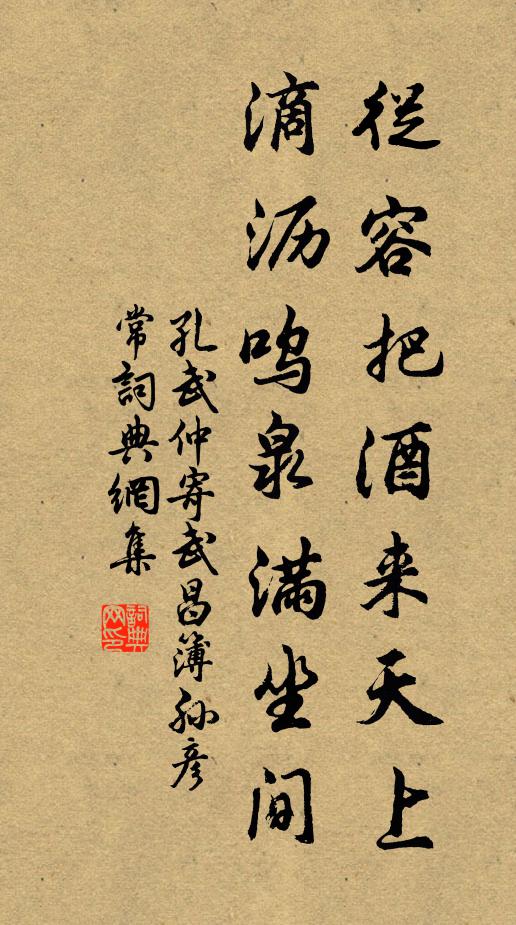 從容把酒来天上
滴沥鸣泉满坐间
孔武仲寄武昌簿孙彦
常詞典網集
詞典网印